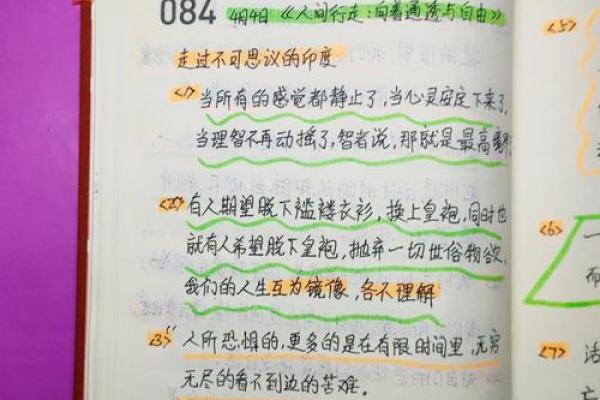 084 4月4日《人间行走:向着通透与自由》
走过不可思议的印度
<1> 当所有的感觉都静止了,当心灵安定下来了,
当理智不再动摇了,智者说,那就是最高境界
<2> 有人期望脱下褴褛衣衫,换上皇袍,同时也
就有人希望脱下皇袍,抛弃一切世俗物欲,
我们的人生互为镜像,各不理解
<3> 人所恐惧的,更多的是在有限时间里,无穷
无尽的看不到边的苦难。
<5>
<6> 一
而
<7> 活